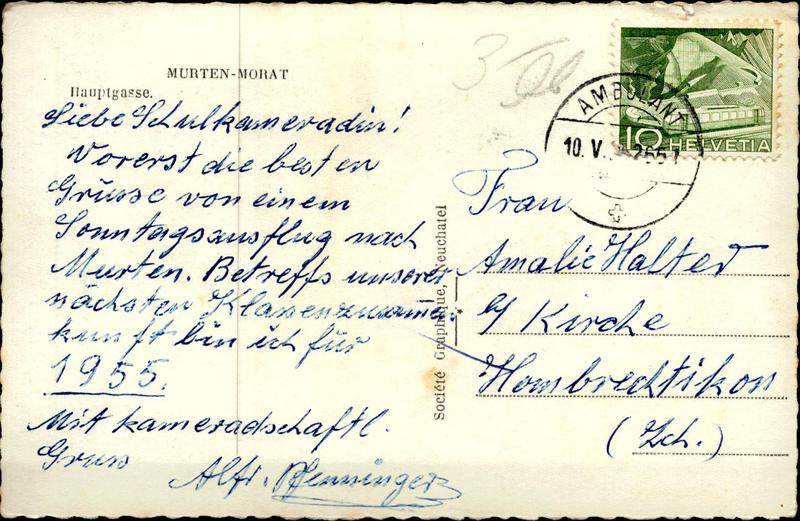 MURTEN-MORAT
Hauptgasse.
Liebe Schulkameradin!
Vorerst die besten
Grüsse von einem
Sonntagsausflug nach
Murten. Betreffs unserer
nächsten Klassenzusammen
kunft bin ich für
1955.
Mit kameradschaftl.
Gruss
Alfr. Pfenninger
Société Graphique, Neuchatel
AMBULANT
10. V.
10 HELVETIA
Frau
Amalie Halter
b/ Kirche
Hombrechtikon
(Zch.)